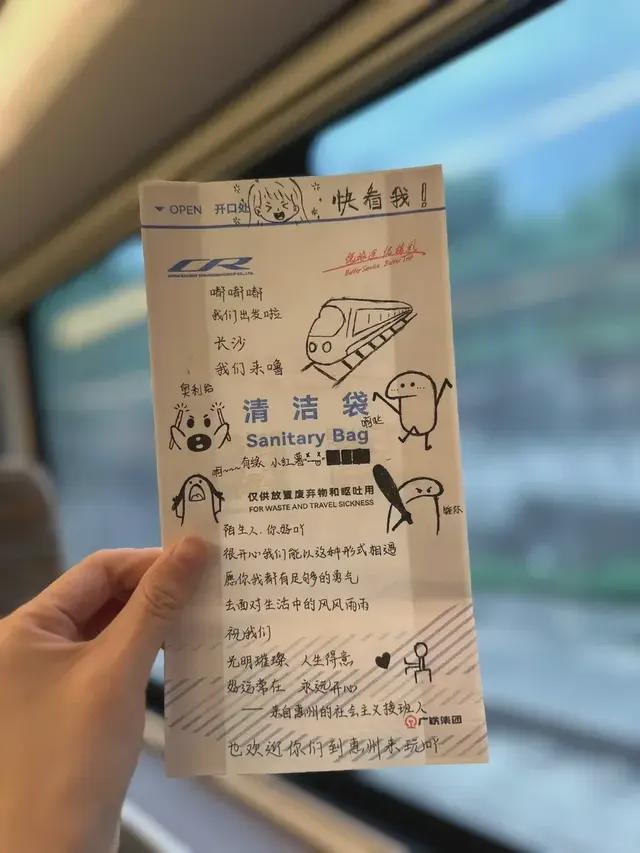 OPEN 开口处 快看我！
CR
Better Service Better Trip
嘟嘟嘟
我们出发啦
长沙
我们来噜
奥利给
清洁袋
啊哒
Sanitary Bag
啊~~~有缘 小红薯
仅供放置废弃物和呕吐用
FOR WASTE AND TRAVEL SICKNESS
陌生人，你好吖
很开心我们能以这种形式相遇
愿你我都有足够的勇气
去面对生活中的风风雨雨
祝我们
光明璀璨、人生得意
好运常在 永远开心
——来自惠州的社会主义接班人
广铁集团
也欢迎你们到惠州来玩吖